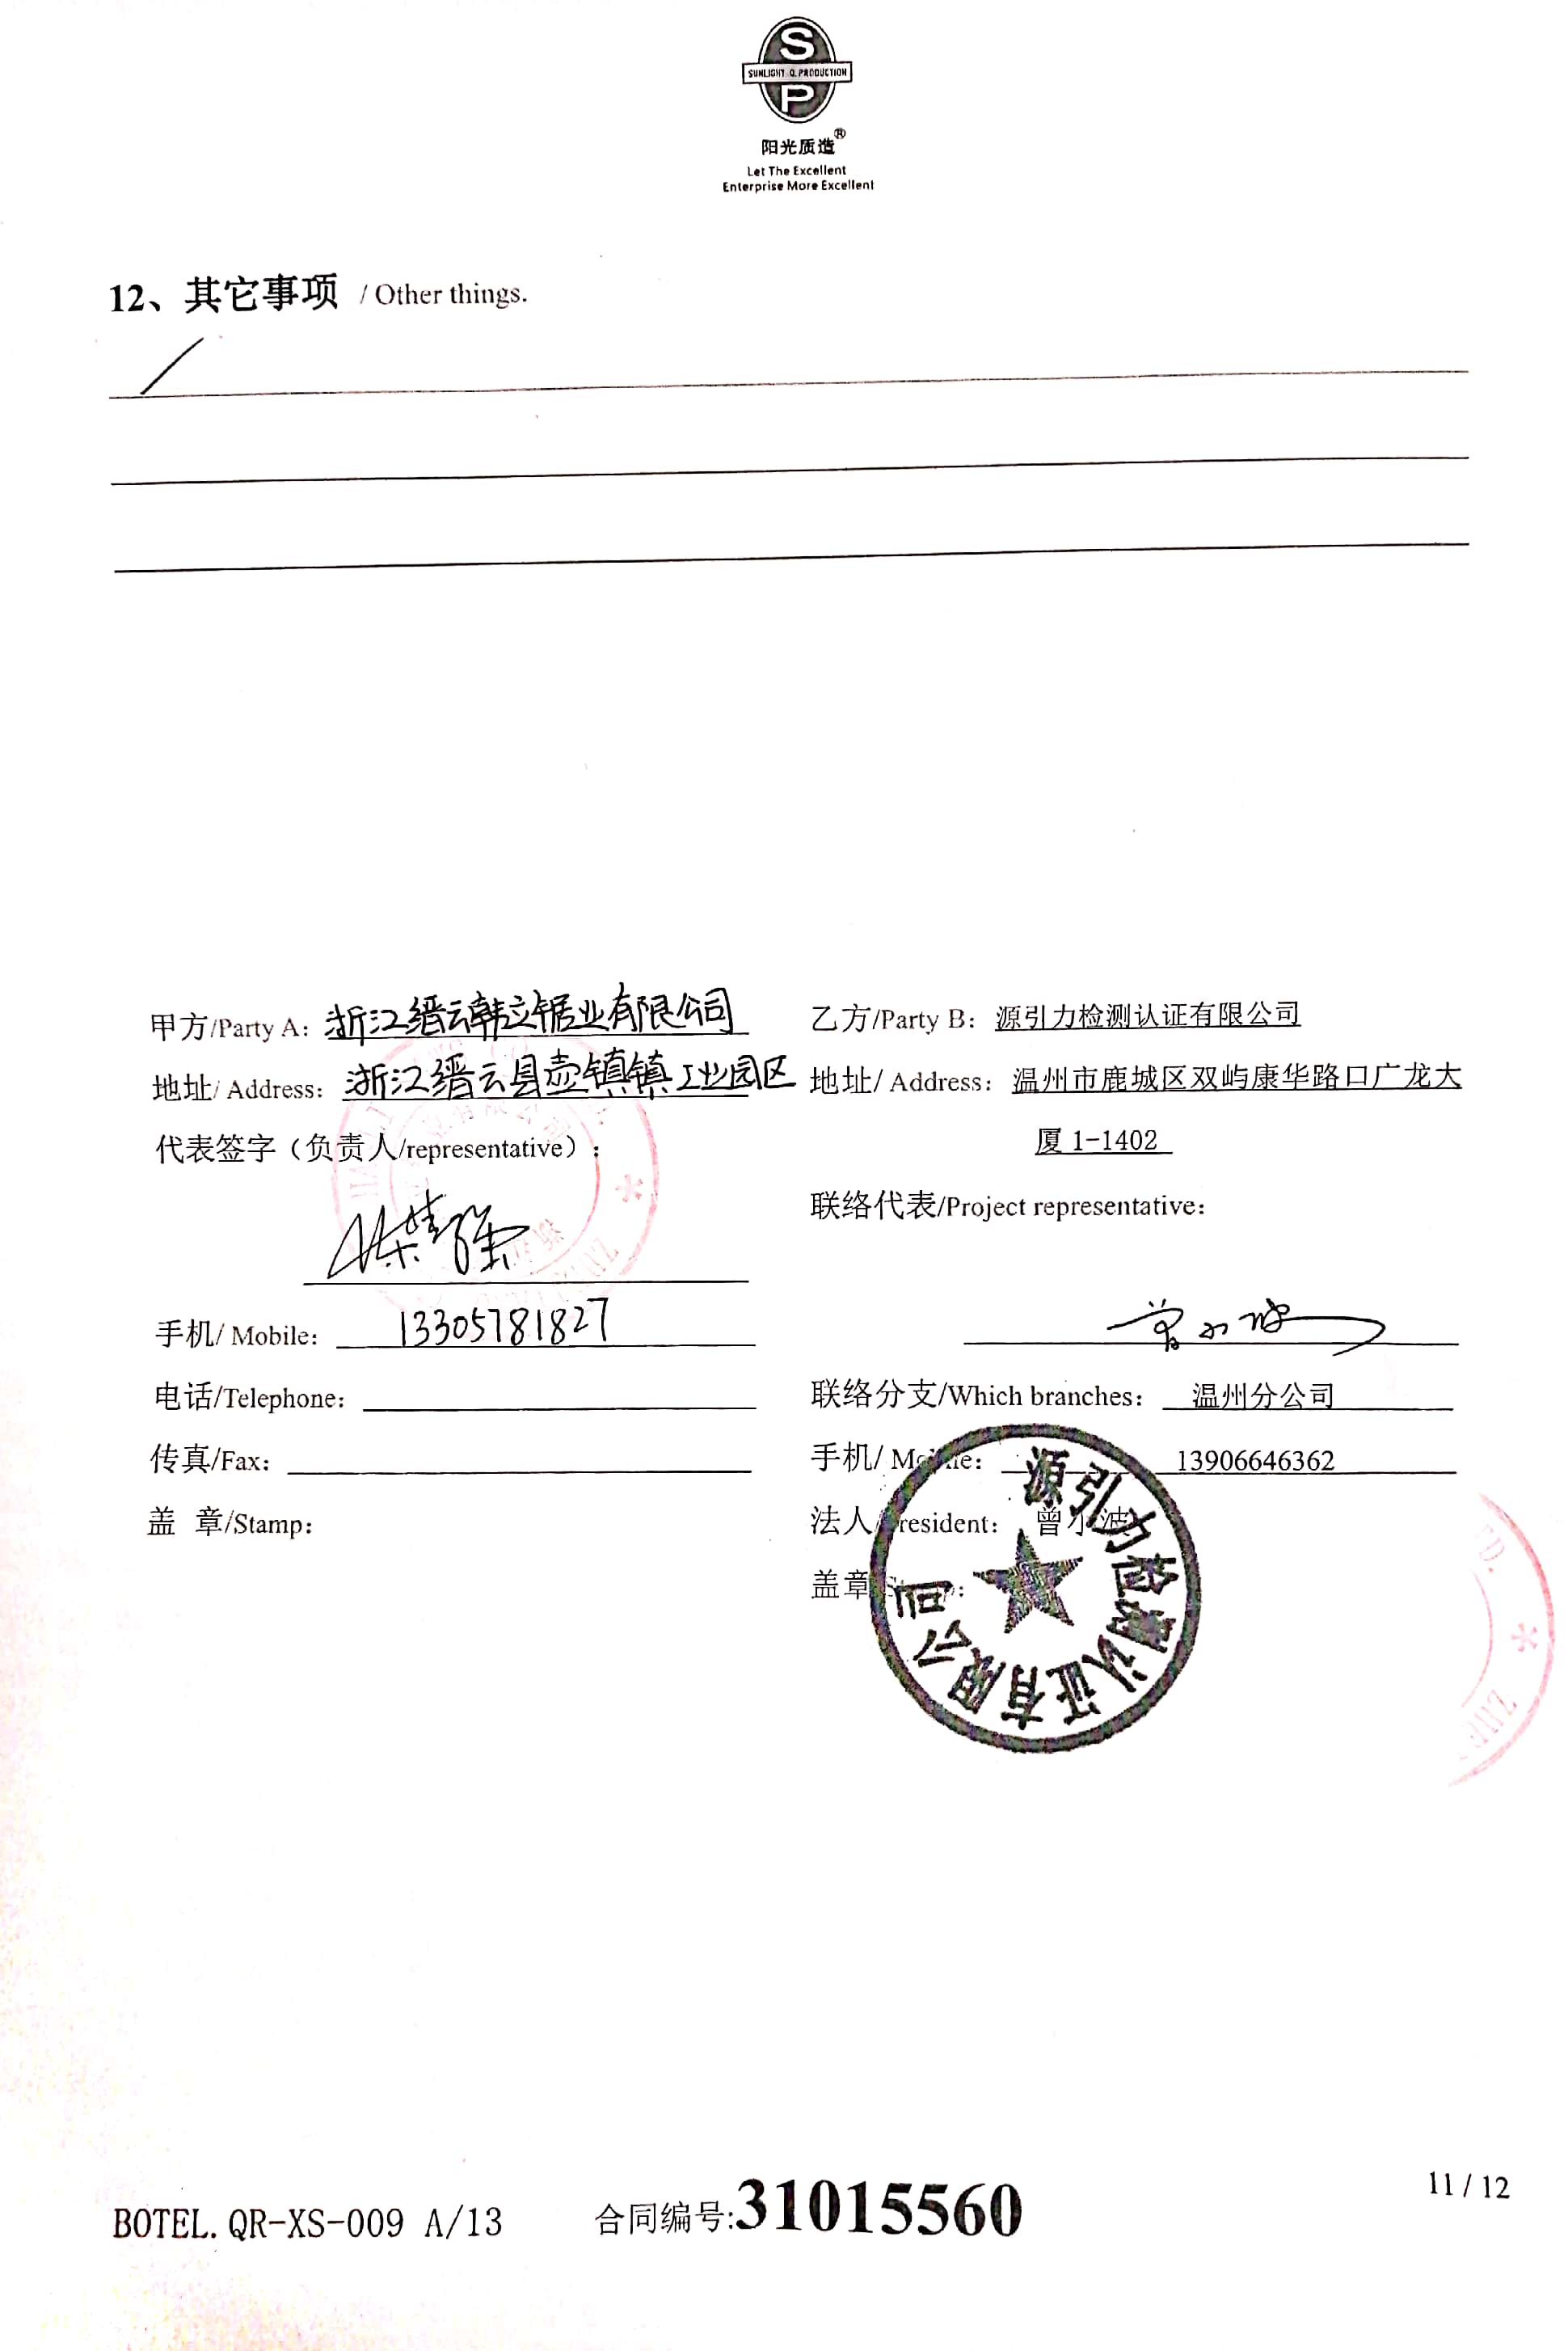 S
SUNLIGHT Q PRODUCTION
P
阳光质造®
Let The Excellent
Enterprise More Excellent
12、其它事项 / Other things.
/
甲方/Party A: 浙江缙云韩立锯业有限公司
地址/ Address: 浙江缙云县壶镇镇工业园区
代表签字（负责人/representative）:
手机/ Mobile: 13305781827
电话/Telephone:
传真/Fax:
盖 章/Stamp:
乙方/Party B: 源引力检测认证有限公司
地址/ Address: 温州市鹿城区双屿康华路口广龙大
厦 1-1402
联络代表/Project representative:
曾小波
联络分支/Which branches: 温州分公司
手机/ Mobile: 13906646362
法人/President: 曾小波
盖章
源引力检测认证有限公司
BOTEL. QR-XS-009 A/13
合同编号:31015560
11 / 12